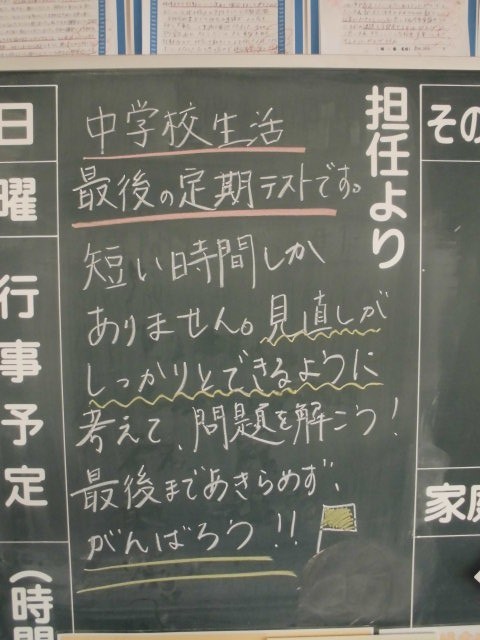 担任より
中学校生活
最後の定期テストです。
短い時間しか
ありません。見直しが
しっかりとできるように
考えて、問題を解こう！
最後まであきらめず、
がんばろう!!
日
曜
行事予定
（時間
その
家庭